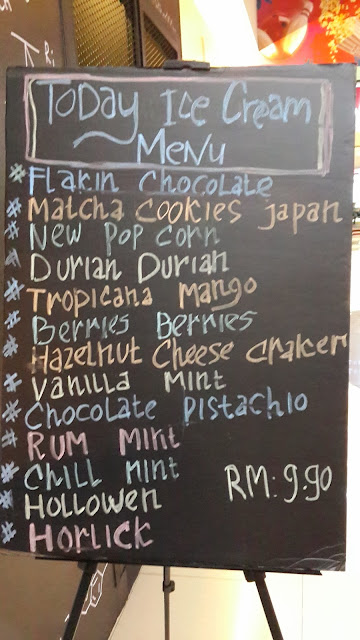 Today Ice Cream
Menu
# Flakin Chocolate
# Matcha Cookies japan
# New Pop corn
# Durian Durian
# Tropicana Mango
# Berries Berries
# Hazelnut Cheese Craker
# Vanilla Mint
# Chocolate Pistachio
# Rum Mint
# Chill Mint
# Hollowen
RM: 9.90
# Horlick